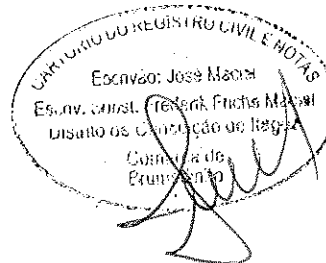 CARTÓRIO DO REGISTRO CIVIL E NOTAS
Escrivão: José Maciel
Escriv. Subst. Frederik Fuchs Maciel
Distrito de Conceição de
Comarca de